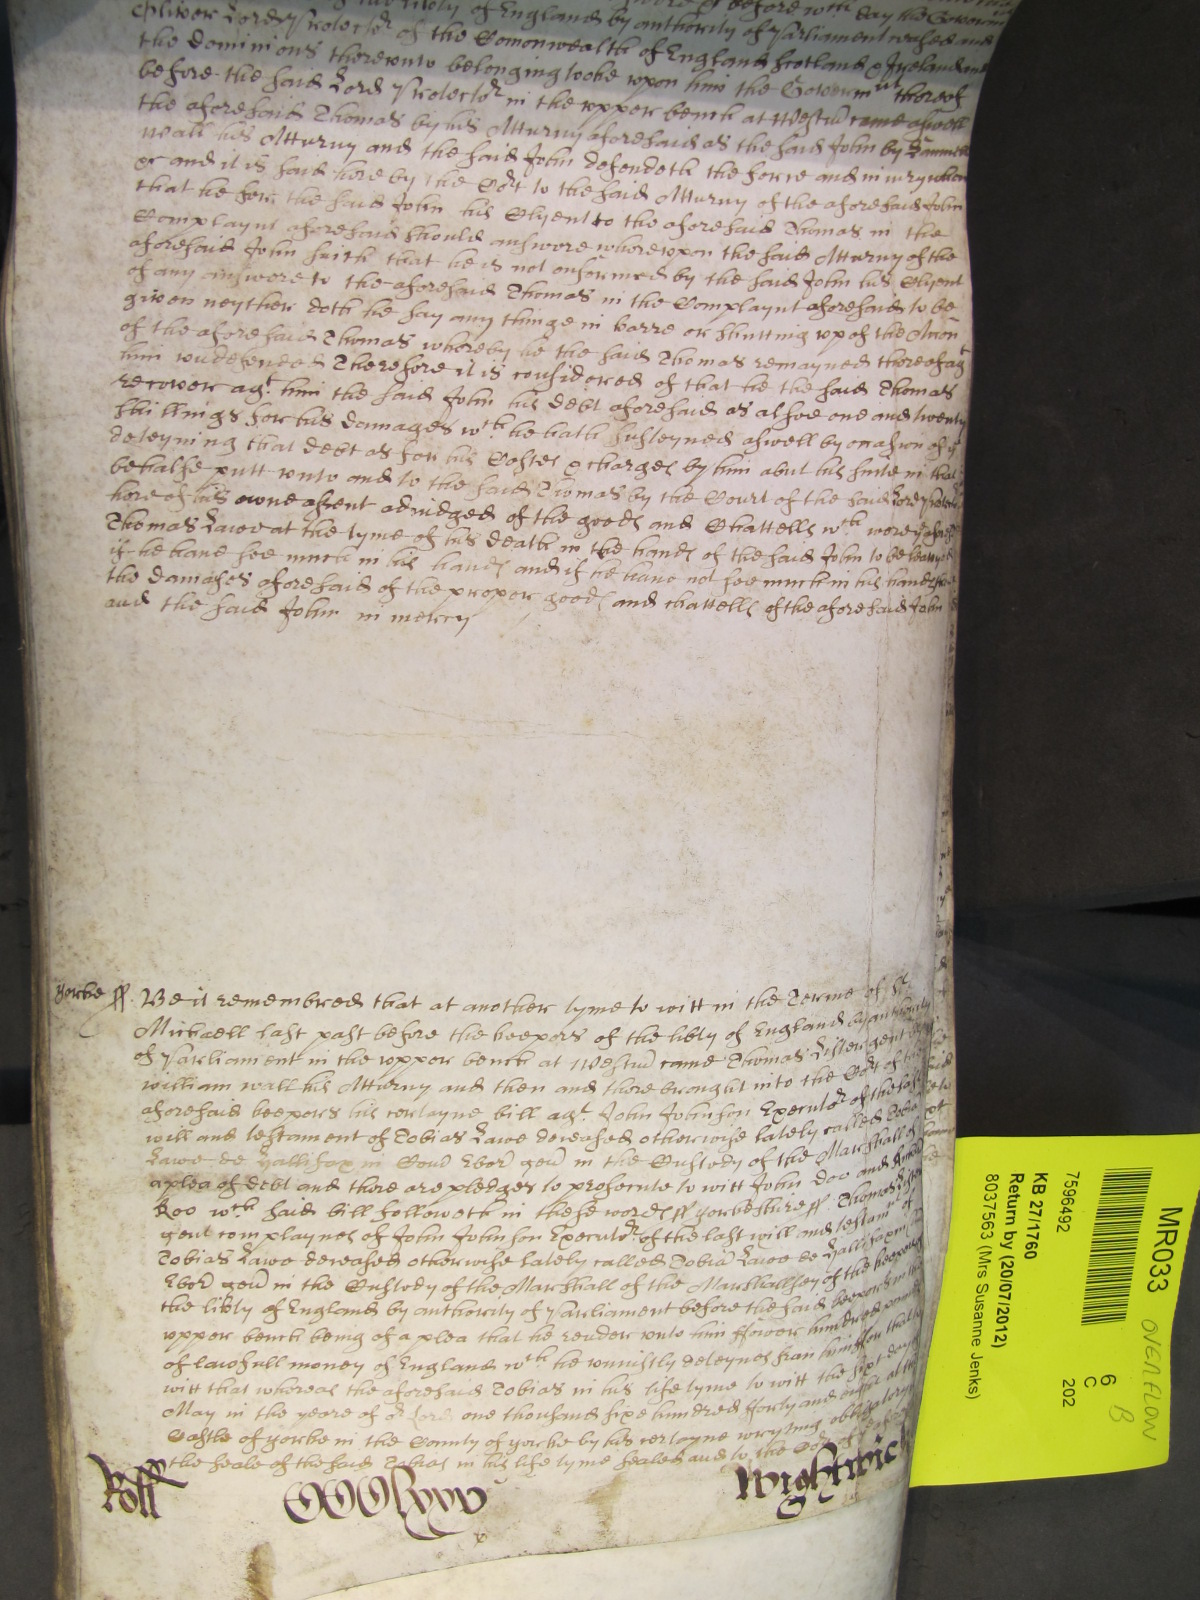 of England by
Oliver Lord Protector of the Comonwealth of England by authority of Parliament
the dominions thereunto belonging tooke upon him the Governmt thereof
before the said Lord Protector in the upper bench at Westm̃ came aswell
the aforesaid Thomas by his Atturny aforesaid as the said John by
Wall his Atturny and the said John defendeth the force and iniury when
&c and it is said here by the Cort to the said Atturny of the aforesaid John
that he for the said John his Clyent to the aforesaid Thomas in the
Complaynt aforesaid should answere whereupon the said Atturny of the
aforesaid John saith that he is not enformed by the said John his Clyent
of any answere to the aforesaid Thomas in the Complaynt aforesaid to be
given neyther doth he say any thinge in barre or shutting up of the Accõn
of the aforesaid Thomas whereby he the said Thomas remayned thereof agt
him undefended Therefore it is considered of that he the said Thomas
recover agt. him the said John his debt aforesaid as alsoe one and twenty
shillings for his damages wch he hath susteyned aswell by occasion of
deteyning that debt as for his Costes & charges by him about his suite in that
behalfe putt unto and to the said Thomas by the Court of the said Lord
here of his owne assent adiudged of the goods and Chattells wch were
Thomas Lawe at the tyme of his death in the hands of the said John to be
if he have soe much in his hands and if he have not soe much in his hands
the damages aforesaid of the proper goods and chattells of the aforesaid John
and the said John in mercy
Yorke ss. Be it remembred that at another tyme to witt in the Terme of St.
Michaell last past before the keepers of the libty of England by authority
of Parliament in the upper bench at Westm̃ came Thomas Lister gent
William Wall his Atturny and then and there brought into the Cort of
aforesaid keepers his certayne bill agt. John Johnson Executor of the last
will and testament of Tobias Lawe deceased otherwise lately called Tobias
Lawe de Hallifax in Com̃ Ebor̃ gen̄ in the Custody of the Marshall of
a plea of debt and there are pledges to prosecute to witt John Doo and
Roo wch said bill followeth in these words ss Yorkeshire ss. Thomas Lister
gent complaynes of John Johnson Executor of the last will and testamt of
Tobias Lawe deceased otherwise lately called Tobias Lawe de Hallifax
Ebor̃ gen̄ in the Custody of the Marshall of the Marshallsey of the keepers
the libty of England by authority of Parliament before the said keepers in the
upper bench being of a plea that he render unto him ffower hundred pounds
of lawfull money of England wch he uniustly deteynes from him ffor that to
witt that whereas the aforesaid Tobias in his life tyme to witt the sixt day
May in the yeare of or Lord one thousand sixe hundred fforty and
Castle of Yorke in the County of Yorke by his certayne wryting obligatory
the seale of the said Tobias in his life tyme sealed and to the Cort of
Roll
CCClxxv
Wightwick
MR033
7596492
KB 27/1760
Return by (20/07/2012)
8037563 (Mrs Susanne Jenks)
6
C
202
OVERFLOW
B